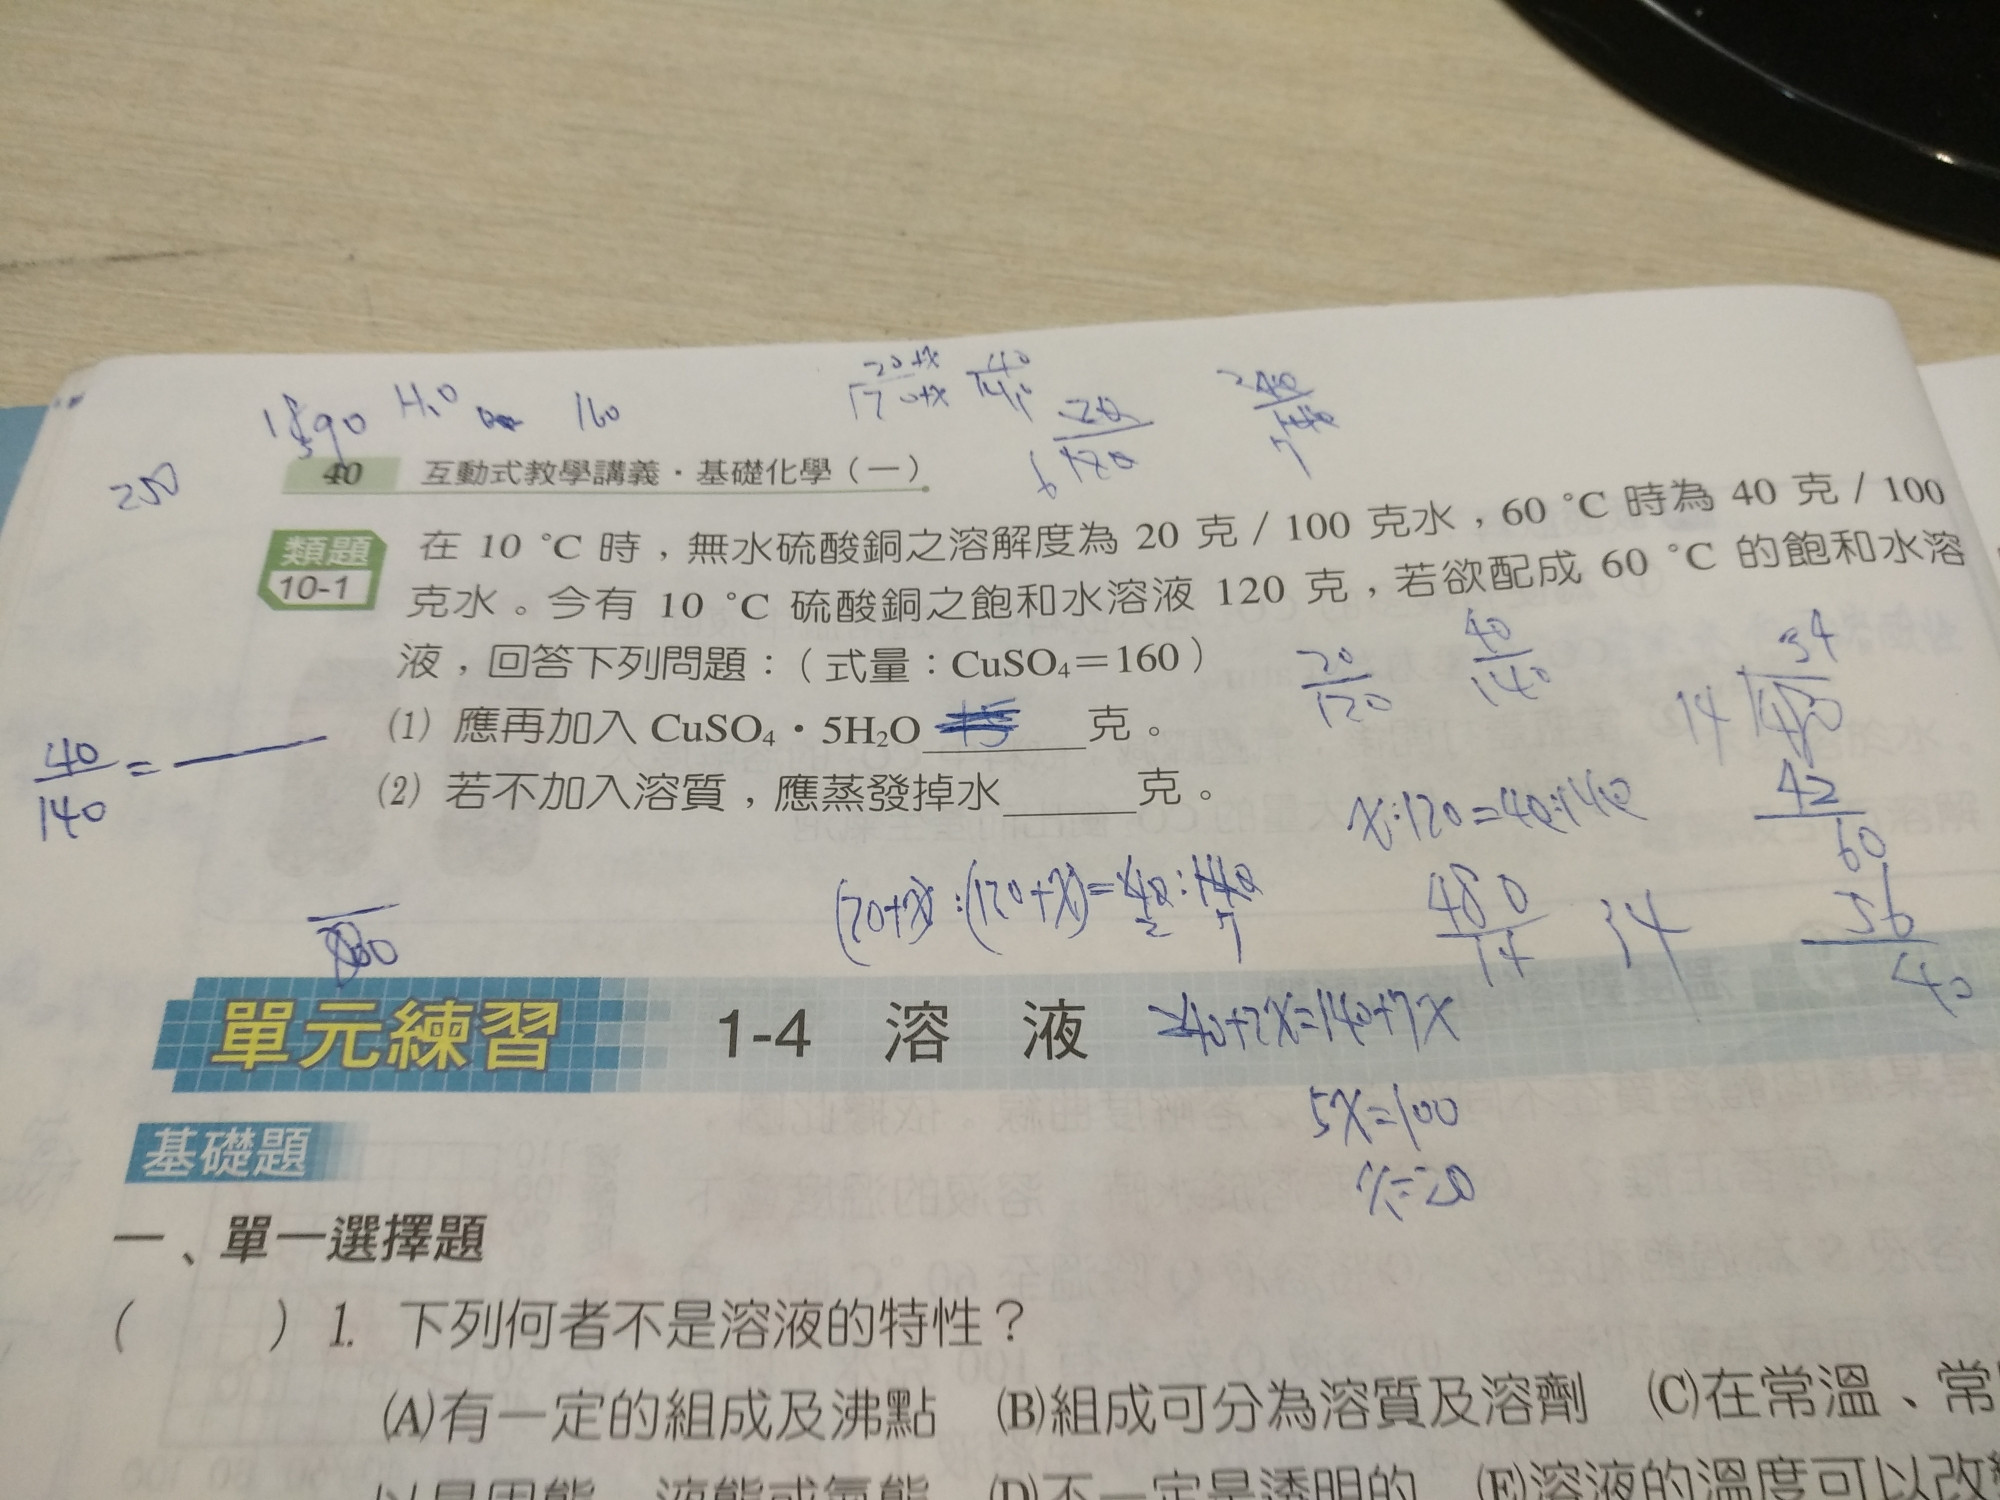 20+x 40
170+x 140
1890 H₂O 160
20
6 120
240
7
250
40 互動式教學講義・基礎化學（一）
類題 10-1 在 10 °C 時，無水硫酸銅之溶解度為 20 克 / 100 克水，60 °C 時為 40 克 / 100
克水。今有 10 °C 硫酸銅之飽和水溶液 120 克，若欲配成 60 °C 的飽和水溶
液，回答下列問題：（式量：CuSO₄＝160）
20 40 34
120 140 14
(1) 應再加入 CuSO₄・5H₂O 克。
(2) 若不加入溶質，應蒸發掉水 克。
40
140 =
x:120=40:140
42
60
56
40
(20+x):(120+x)=40:140
2 7
480 34
14
240+2x=140+7x
5x=100
x=20
單元練習 1-4 溶 液
基礎題
一、單一選擇題
（ ）1. 下列何者不是溶液的特性？
(A)有一定的組成及沸點 (B)組成可分為溶質及溶劑 (C)在常溫、常
(D)不一定是透明的 (E)溶液的溫度可以改